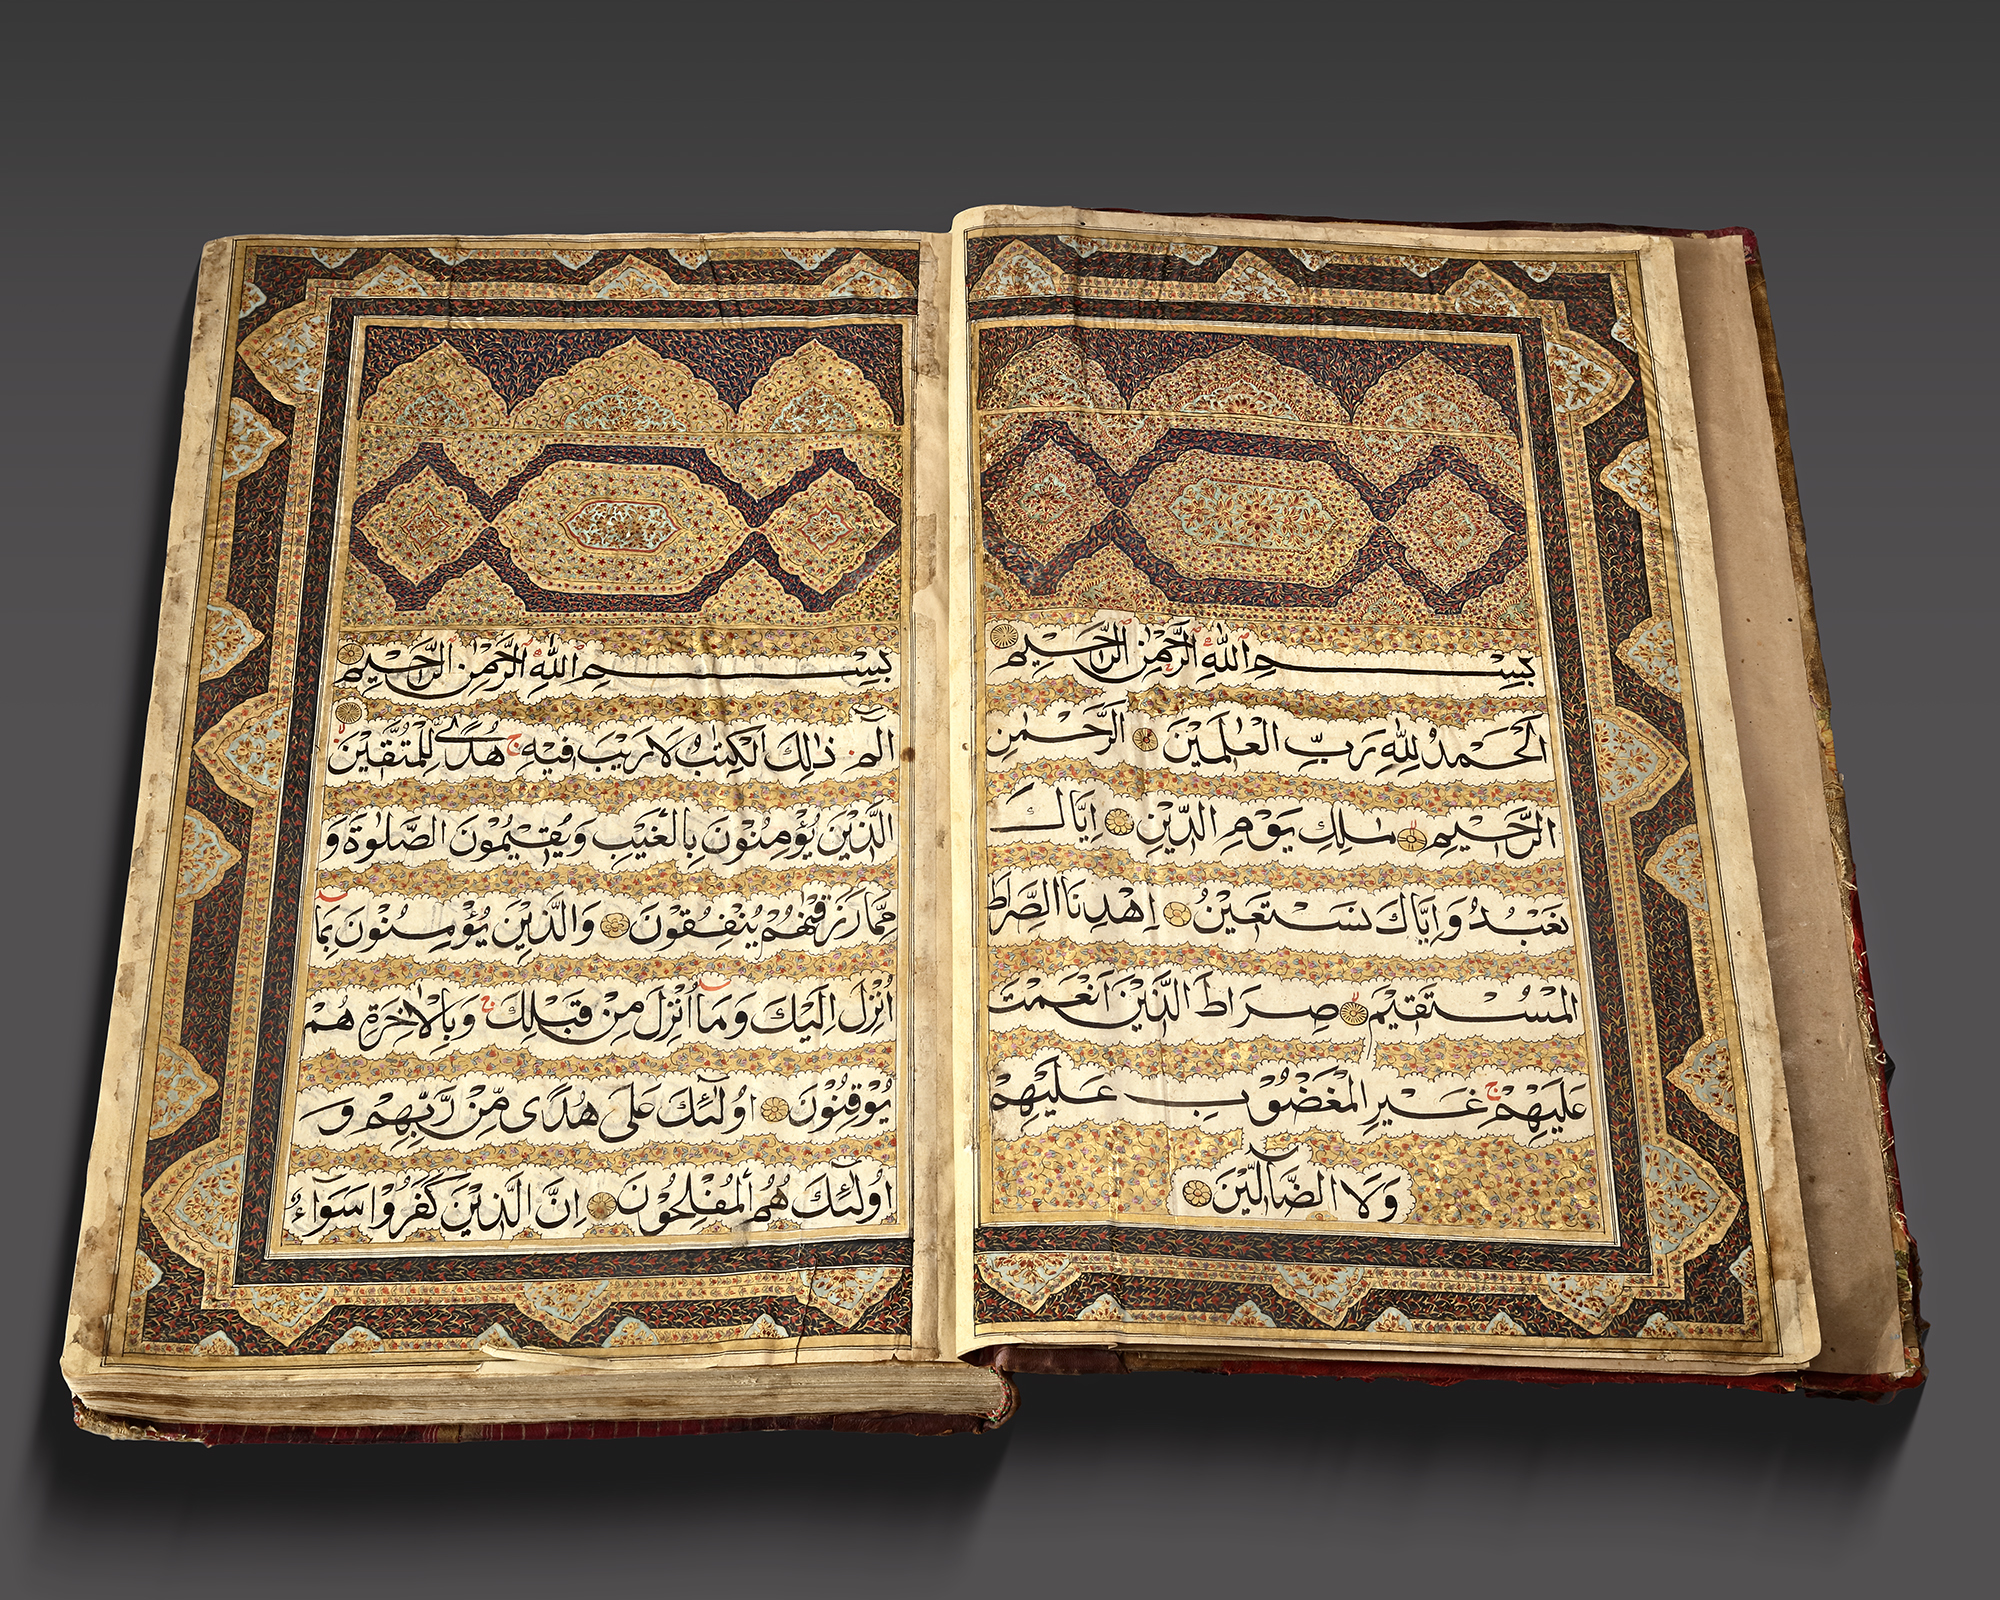 بِسْمِ اللّٰهِ الرَّحْمٰنِ الرَّحِيْمِ
اَلْحَمْدُ لِلّٰهِ رَبِّ الْعٰلَمِيْنَ الرَّحْمٰنِ
الرَّحِيْمِ مٰلِكِ يَوْمِ الدِّيْنِ اِيَّاكَ
نَعْبُدُ وَاِيَّاكَ نَسْتَعِيْنُ اِهْدِنَا الصِّرَاطَ
الْمُسْتَقِيْمَ صِرَاطَ الَّذِيْنَ اَنْعَمْتَ
عَلَيْهِمْ ج غَيْرِ الْمَغْضُوْبِ عَلَيْهِمْ
وَلَا الضَّآلِّيْنَ
بِسْمِ اللّٰهِ الرَّحْمٰنِ الرَّحِيْمِ
الٓمٓ ذٰلِكَ الْكِتٰبُ لَا رَيْبَ فِيْهِ ج هُدًى لِلْمُتَّقِيْنَ
الَّذِيْنَ يُؤْمِنُوْنَ بِالْغَيْبِ وَيُقِيْمُوْنَ الصَّلٰوةَ وَ
مِمَّا رَزَقْنٰهُمْ يُنْفِقُوْنَ وَالَّذِيْنَ يُؤْمِنُوْنَ بِمَا
اُنْزِلَ اِلَيْكَ وَمَآ اُنْزِلَ مِنْ قَبْلِكَ ج وَبِالْاٰخِرَةِ هُمْ
يُوْقِنُوْنَ اُولٰٓئِكَ عَلٰى هُدًى مِّنْ رَّبِّهِمْ وَ
اُولٰٓئِكَ هُمُ الْمُفْلِحُوْنَ اِنَّ الَّذِيْنَ كَفَرُوْا سَوَآءٌ